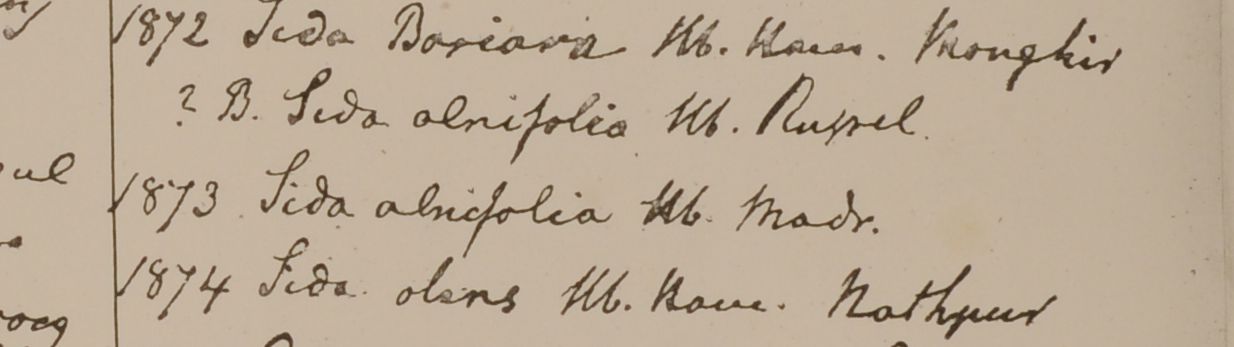 1872 Sida Bariara Hb. Ham. Monghir
? B. Sida alnifolia Hb. Russel.
1873 Sida alnifolia Hb. Madr.
1874 Sida olens Hb. Ham. Nathpur